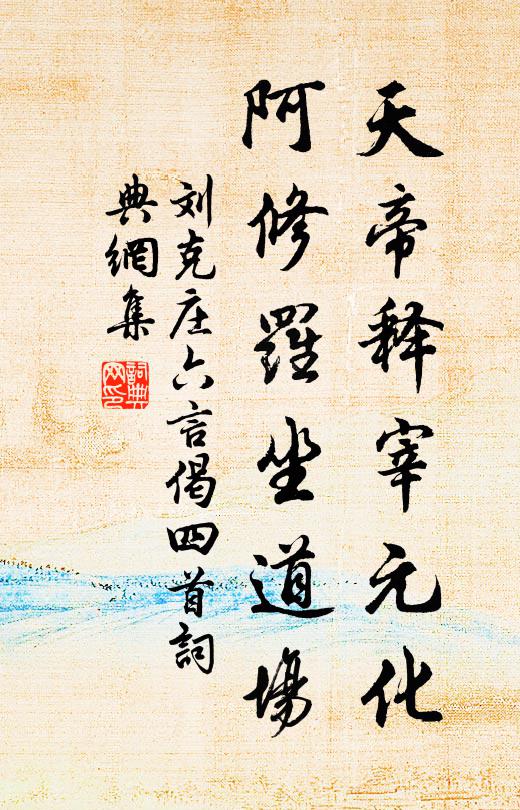 天帝释宰元化
阿修羅坐道場
刘克庄六言偈四首詞
典網集
詞典
网印